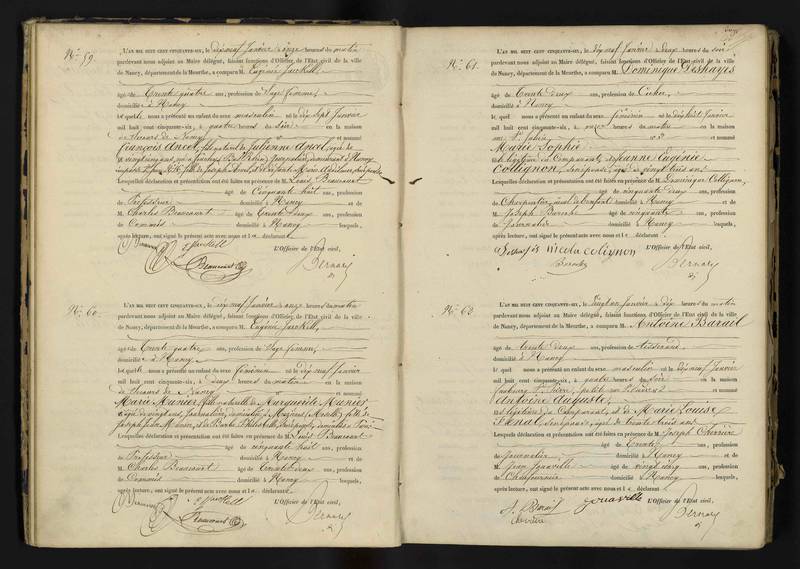 N° 59.
L'AN MIL HUIT CENT CINQUANTE-SIX, le dix neuf Janvier onze heures du matin
pardevant nous adjoint au Maire délégué, faisant fonctions d'Officier de l'Etat civil de la ville
de Nancy, département de la Meurthe, a comparu M. Eugénie
âgé de trente quatre ans, profession de Sage femme,
domicilié à Nancy
lequel nous a présenté un enfant du sexe masculin né le dix sept Janvier
mil huit cent cinquante-six, à quatre heures du soir en la maison
de secours de Nancy et nommé
François Ancel, fils naturel de Julienne Ancel, âgée de
vingt cinq ans, demeurant à Nancy
fille de Joseph Ancel, et de
Lesquelles déclaration et présentation ont été faites en présence de M. Louis Beaucourt
âgé de Cinquante huit ans, profession
de Professeur domicilié à Nancy et de
M. Charles Beaucourt âgé de trente deux ans, profession
de Commis domicilié à Nancy lesquels,
après lecture, ont signé le présent acte avec nous et le déclarant
L'Officier de l'Etat civil,
Beaucourt
Bernard
N° 60.
L'AN MIL HUIT CENT CINQUANTE-SIX, le dix neuf Janvier onze heures du matin
pardevant nous adjoint au Maire délégué, faisant fonctions d'Officier de l'Etat civil de la ville
de Nancy, département de la Meurthe, a comparu M. Eugénie
âgé de trente quatre ans, profession de Sage femme,
domicilié à Nancy
lequel nous a présenté un enfant du sexe féminin né le dix neuf Janvier
mil huit cent cinquante-six, à deux heures du matin en la maison
de secours de Nancy et nommé
Marie Munier, fille naturelle de Marguerite Munier
âgée de vingt ans, Journalière, domiciliée à
Joseph Munier, et de Barbe
Lesquelles déclaration et présentation ont été faites en présence de M. Louis Beaucourt
âgé de cinquante huit ans, profession
de Professeur domicilié à Nancy et de
M. Charles Beaucourt âgé de trente deux ans, profession
de Commis domicilié à Nancy lesquels,
après lecture, ont signé le présent acte avec nous et le déclarant
L'Officier de l'Etat civil,
Beaucourt
Bernard
N° 61.
L'AN MIL HUIT CENT CINQUANTE-SIX, le dix neuf Janvier deux heures du soir
pardevant nous adjoint au Maire délégué, faisant fonctions d'Officier de l'Etat civil de la ville
de Nancy, département de la Meurthe, a comparu M. Dominique Deshayes
âgé de trente deux ans, profession de Cocher,
domicilié à Nancy
lequel nous a présenté un enfant du sexe féminin né le dix huit Janvier
mil huit cent cinquante-six, à onze heures du matin en la maison
rue St Jean, et nommé
Marie Sophie
fille légitime du Comparant, et de Jeanne Eugénie
Collignon, son épouse, âgée de vingt huit ans
Lesquelles déclaration et présentation ont été faites en présence de M. Dominique Collignon,
âgé de cinquante deux ans, profession
de Charpentier, oncle de l'enfant domicilié à Nancy et de
M. Joseph Baroche âgé de cinquante ans, profession
de Journalier domicilié à Nancy lesquels,
après lecture, ont signé le présent acte avec nous et le déclarant
L'Officier de l'Etat civil,
nicola colignon
Bernard
L'AN MIL HUIT CENT CINQUANTE-SIX, le vingt un Janvier dix heures du matin
pardevant nous adjoint au Maire délégué, faisant fonctions d'Officier de l'Etat civil de la ville
de Nancy, département de la Meurthe, a comparu M. Antoine
âgé de trente deux ans, profession de tisserand
domicilié à Nancy
lequel nous a présenté un enfant du sexe masculin né le dix neuf Janvier
mil huit cent cinquante-six, à quatre heures du soir en la maison
faubourg St Pierre, et nommé
Antoine Auguste,
fils légitime du Comparant, et de Marie Louise
son épouse, âgée de trente trois ans
Lesquelles déclaration et présentation ont été faites en présence de M. Joseph Chevrière
âgé de trente ans, profession
de Journalier domicilié à Nancy et de
M. Jean Jouaville âgé de vingt cinq ans, profession
de domicilié à Nancy lesquels,
après lecture, ont signé le présent acte avec nous et le déclarant
L'Officier de l'Etat civil,
jouaville
chevrière
Bernard